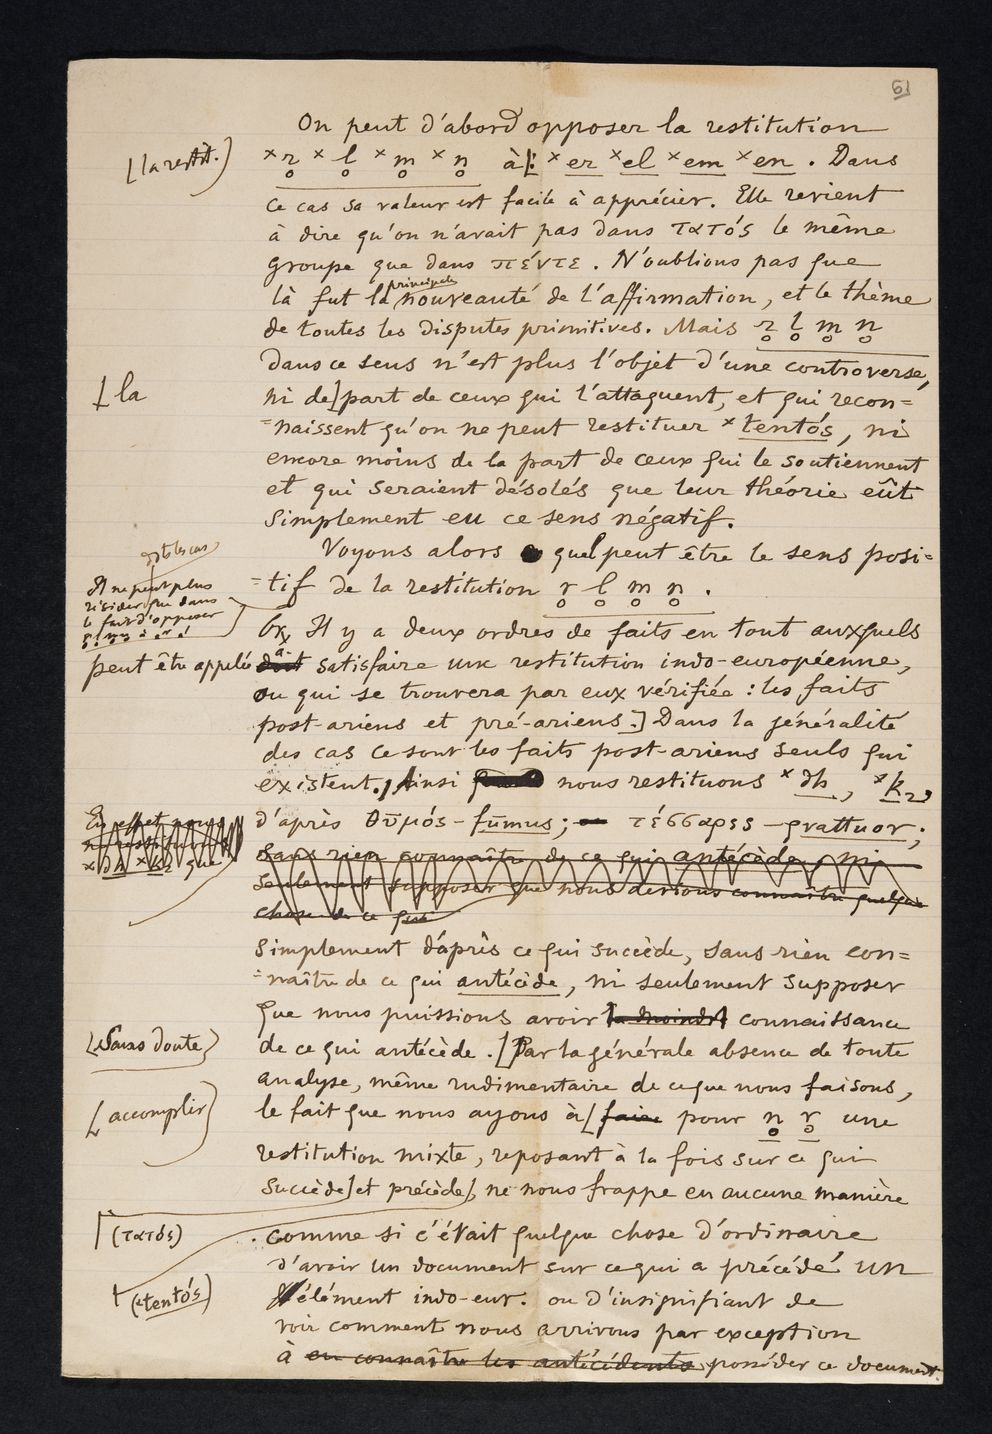 61
On peut d'abord opposer la restitution
[la restit.]
×r̥ ×l̥ ×m̥ ×n̥ à [: ×er ×el ×em ×en . Dans
ce cas sa valeur est facile à apprécier. Elle revient
à dire qu'on n'avait pas dans τατός le même
groupe que dans πέντε . N'oublions pas que
principale
là fut la nouveauté de l'affirmation, et le thème
de toutes les disputes primitives. Mais r̥ l̥ m̥ n̥
dans ce sens n'est plus l'objet d'une controverse,
[la
ni de] part de ceux qui l'attaquent, et qui recon=
=naissent qu'on ne peut restituer ×tentós, ni
encore moins de la part de ceux qui le soutiennent
et qui seraient désolés que leur théorie eût
simplement eu ce sens négatif.
Voyons alors quel peut être le sens posi=
=tif de la restitution r̥ l̥ m̥ n̥ .
les cas
Il ne peut plus
résider que dans
le fait d'opposer
Il y a deux ordres de faits en tout auxquels
peut être appelée à doit satisfaire une restitution indo-européenne,
ou qui se trouvera par eux vérifiée : les faits
post-ariens et pré-ariens.] Dans la généralité
des cas ce sont les faits post-ariens seuls qui
existent. Ainsi nous restituons ×dh, ×k₂,
En effet nous
×dh ×k₂ que
d'après θῡμός – fūmus; – τέσσαρες – qvattuor;
sans rien connaître de ce qui antécède, ni
seulement supposer que nous devions connaître quelque
chose de ce qui
simplement d'après ce qui succède, sans rien con=
=naître de ce qui antécède, ni seulement supposer
que nous puissions avoir la moindre connaissance
[Sans doute]
de ce qui antécède .] Par la générale absence de toute
analyse, même rudimentaire de ce que nous faisons,
[accomplir]
le fait que nous ayons à [faire pour n̥ r̥ une
restitution mixte, reposant à la fois sur ce qui
succède] et précède], ne nous frappe en aucune manière
(τατός)
comme si c'était quelque chose d'ordinaire
d'avoir un document sur ce qui a précédé un
(×tentós)
élément indo-eur. ou d'insignifiant de
voir comment nous arrivons par exception
à en connaître les antécédents posséder ce document.